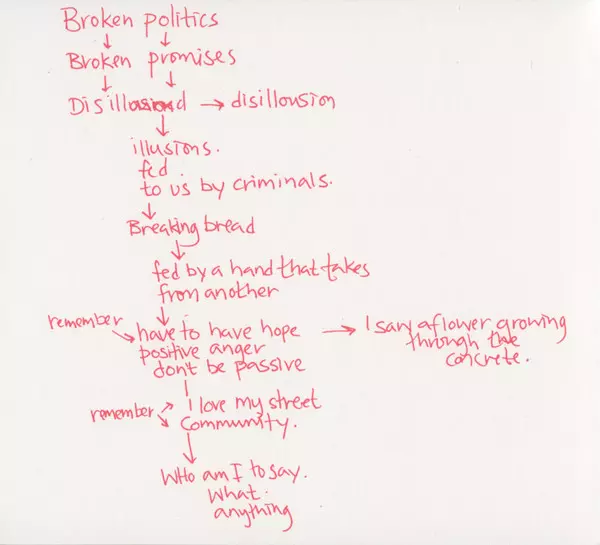 Broken politics
Broken promises
Disillusiond → disillousion
illusions.
fed
to us by criminals.
Breaking bread
fed by a hand that takes
from another
remember
have to have hope → I saw a flower growing
positive anger through the
don't be passive concrete.
I love my street
remember
Community.
WHO am I to say.
What.
anything